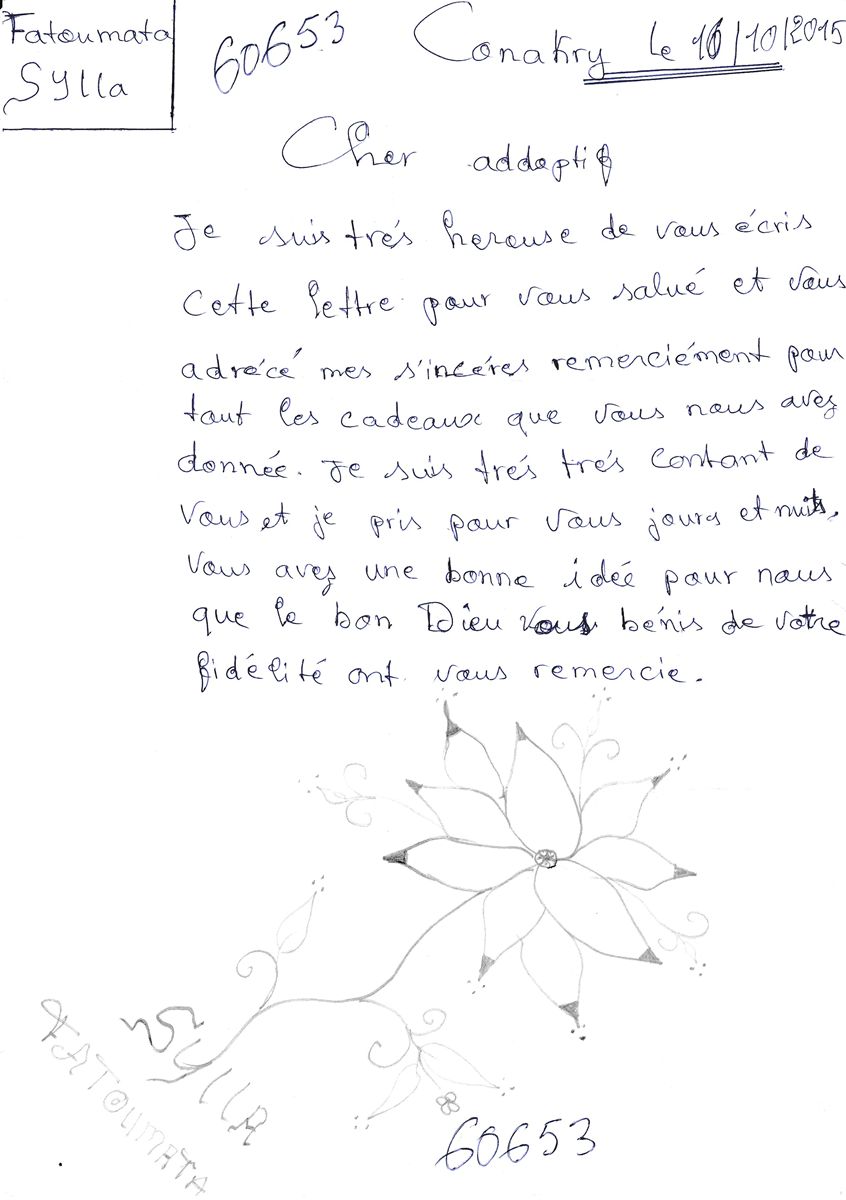 Fatoumata
Sylla
60653
Conakry le 16/10/2015
Cher addoptif
Je suis trés hereuse de vous écris
Cette lettre pour vous salué et vous
adrécé mes s'incéres remerciément pour
tout les cadeaux que vous nous avez
donnée. Je suis trés trés Contant de
Vous et je pris pour vous jours et nuits.
Vous avez une bonne idée pour nous
que le bon Dieu vous bénis de votre
fidélité ont vous remercie.
Sylla
FATOUMATA
60653